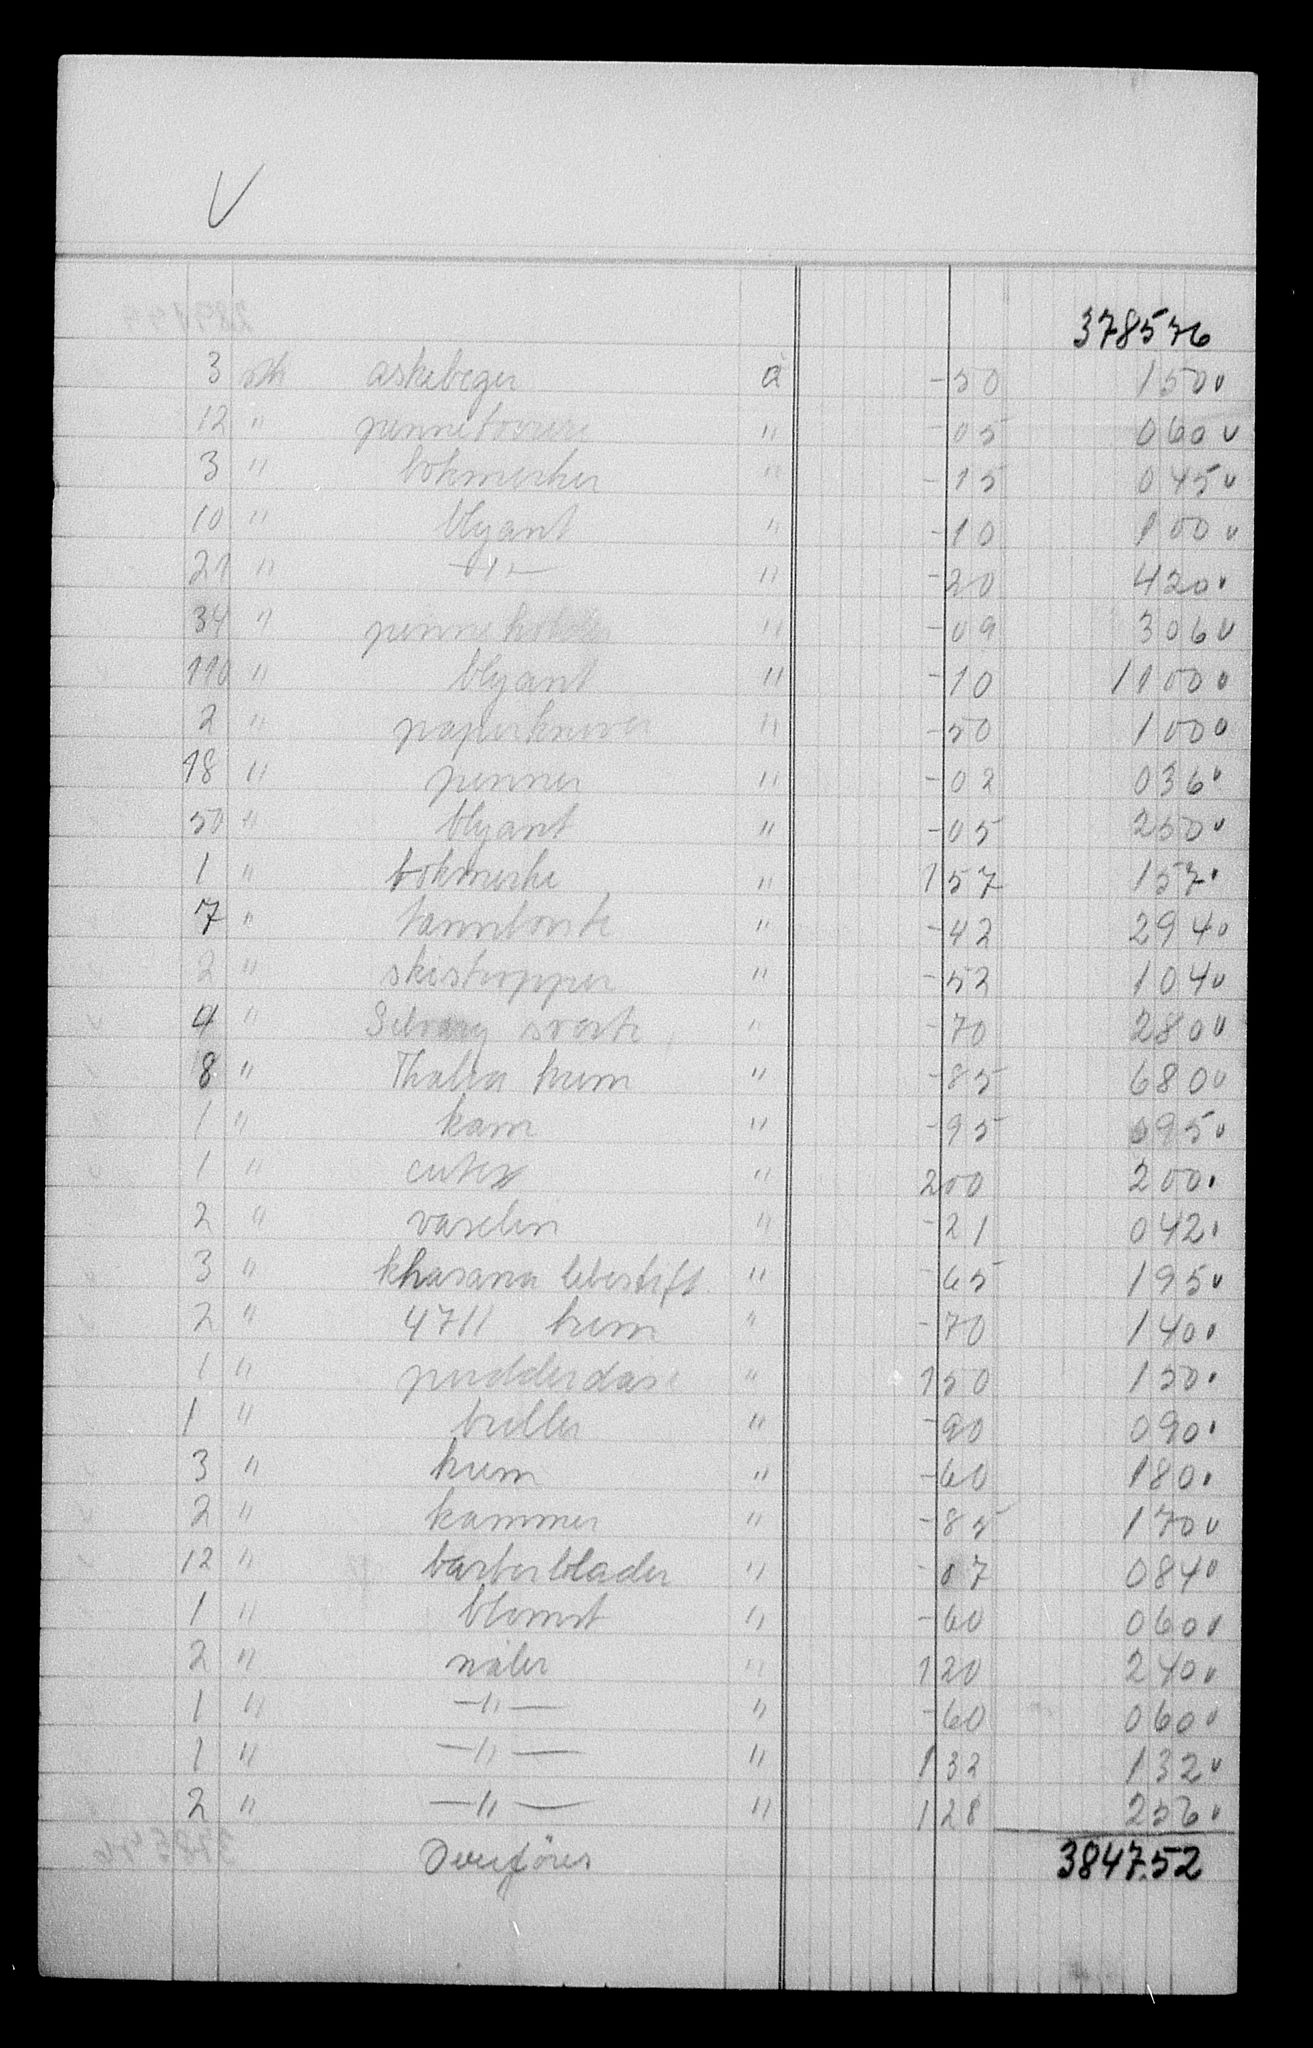 V
378576
3 stk askebeger à -50 150
12 " " -05 060
3 " bokmerker " -15 045
10 " blyant " -10 100
21 " -"- " -20 420
34 " penneholder " -09 306
110 " blyant " -10 1100
2 " papirkniver " -50 100
18 " penner " -02 036
50 " blyant " -05 250
1 " bokmerke " 157 157
7 " tannbørste " -42 294
2 " skistropper " -52 104
4 " " -70 280
8 " Thalia krem " -85 680
1 " kam " -95 095
1 " cutex " 200 200
2 " vaselin " -21 042
3 " khasana lebestift " -65 195
2 " 4711 krem " -70 140
1 " pudderdåse " 150 150
1 " briller " -90 090
3 " krem " -60 180
2 " kammer " -85 170
12 " barberblader " -07 084
1 " blomst " -60 060
2 " nåler " 120 240
1 " -"- " -60 060
1 " -"- " 132 132
2 " -"- " 128 256
Overføres 3847.52